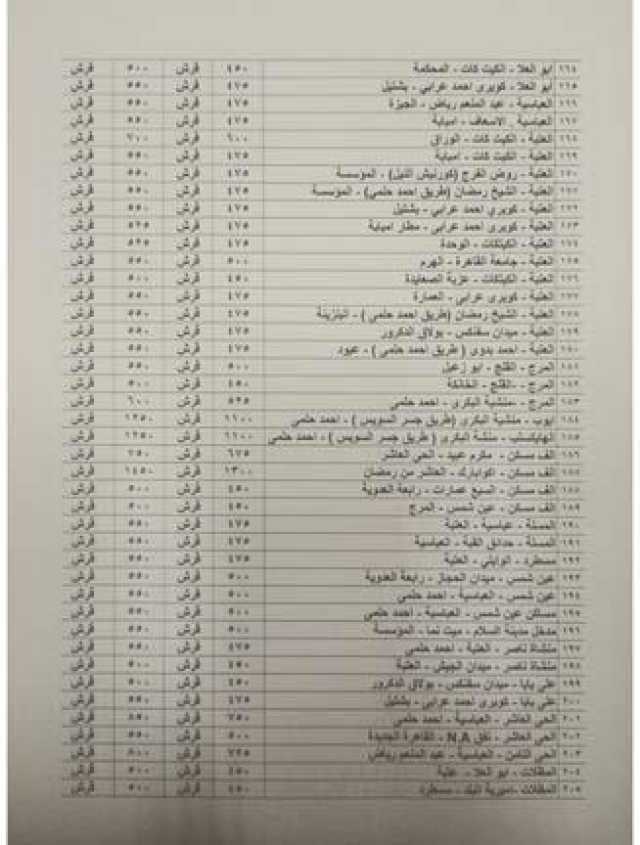 ١٦٤ ابو العلا - الكيت كات - المحكمة ٤٥٠ قرش ٥٠٠ قرش
١٦٥ أبو العلا - كوبرى احمد عرابي - بشتيل ٤٧٥ قرش ٥٥٠ قرش
١٦٦ العباسية - عبد المنعم رياض - الجيزة ٤٧٥ قرش ٥٥٠ قرش
١٦٧ العباسية - الاسعاف - امبابة ٤٧٥ قرش ٥٥٠ قرش
١٦٨ العتبة - الكيت كات - الوراق ٦٠٠ قرش ٧٠٠ قرش
١٦٩ العتبة - الكيت كات - امبابة ٤٧٥ قرش ٥٥٠ قرش
١٧٠ العتبة - روض الفرج (كورنيش النيل) - المؤسسة ٤٧٥ قرش ٥٥٠ قرش
١٧١ العتبة - الشيخ رمضان (طريق احمد حلمي) - المؤسسة ٤٧٥ قرش ٥٥٠ قرش
١٧٢ العتبة - كوبري احمد عرابي - بشتيل ٤٧٥ قرش ٥٥٠ قرش
١٧٣ العتبة - كوبرى احمد عرابى - مطار امبابة ٤٧٥ قرش ٥٢٥ قرش
١٧٤ العتبة - الكيتكات - الوحدة ٤٧٥ قرش ٥٢٥ قرش
١٧٥ العتبة - جامعة القاهرة - الهرم ٥٠٠ قرش ٥٥٠ قرش
١٧٦ العتبة - الكيتكات - عزبة الصعايدة ٤٥٠ قرش ٥٠٠ قرش
١٧٧ العتبة - كوبرى عرابي - العمارة ٤٧٥ قرش ٥٥٠ قرش
١٧٨ العتبة - الشيخ رمضان (طريق احمد حلمي ) - ٤٧٥ قرش ٥٥٠ قرش
١٧٩ العتبة - ميدان سفنكس - بولاق الدكرور ٤٧٥ قرش ٥٥٠ قرش
١٨٠ العتبة - احمد بدوى ( طريق احمد حلمي ) - عبود ٤٧٥ قرش ٥٥٠ قرش
١٨١ المرج - القلج - ابو زعبل ٥٠٠ قرش ٥٥٠ قرش
١٨٢ المرج - القلج - الخانكة ٤٥٠ قرش ٥٠٠ قرش
١٨٣ المرج - منشية البكرى - احمد حلمى ٥٢٥ قرش ٦٠٠ قرش
١٨٤ ايوب - منشية البكرى (طريق جسر السويس ) - احمد حلمي ١١٠٠ قرش ١٢٥٠ قرش
١٨٥ الهايكستب - منشة البكرى ( طريق جسر السويس ) - احمد حلمي ١١٠٠ قرش ١٢٥٠ قرش
١٨٦ الف مسكن - مكرم عبيد - الحى العاشر ٦٧٥ قرش ٧٥٠ قرش
١٨٧ الف مسكن - - العاشر من رمضان ١٣٠٠ قرش ١٤٥٠ قرش
١٨٨ الف مسكن - السبع عمارات - رابعة العدوية ٤٥٠ قرش ٥٠٠ قرش
١٨٩ الف مسكن - عين شمس - المرج ٤٥٠ قرش ٥٠٠ قرش
١٩٠ المسلة - عباسية - العتبة ٤٧٥ قرش ٥٥٠ قرش
١٩١ المسلة - حدائق القبة - العباسية ٤٧٥ قرش ٥٥٠ قرش
١٩٢ مسطرد - الوايلي - العتبة ٤٧٥ قرش ٥٥٠ قرش
١٩٣ عين شمس - ميدان الحجاز - رابعة العدوية ٥٠٠ قرش ٥٥٠ قرش
١٩٤ عين شمس - العباسية - احمد حلمي ٥٠٠ قرش ٥٥٠ قرش
١٩٥ مساكن عين شمس - العباسية - احمد حلمي ٥٠٠ قرش ٥٥٠ قرش
١٩٦ مدخل مدينة السلام - ميت نما - المؤسسة ٥٠٠ قرش ٥٥٠ قرش
١٩٧ منشاة ناصر - العتبة - احمد حلمي ٤٧٥ قرش ٥٥٠ قرش
١٩٨ منشاة ناصر - ميدان الجيش - العتبة ٤٥٠ قرش ٥٠٠ قرش
١٩٩ على بابا - ميدان سفنكس - بولاق الدكرور ٤٧٥ قرش ٥٥٠ قرش
٢٠٠ على بابا - كوبرى احمد عرابى - بشتيل ٤٧٥ قرش ٥٥٠ قرش
٢٠١ الحى العاشر - العباسية - احمد حلمي ٧٥٠ قرش ٨٥٠ قرش
٢٠٢ الحى العاشر - نفق N.A - القاهرة الجديدة ٥٠٠ قرش ٥٥٠ قرش
٢٠٣ الحى الثامن - العباسية - عبد المنعم رياض ٧٢٥ قرش ٨٠٠ قرش
٢٠٤ المظلات - ابو العلا - عتبة ٤٥٠ قرش ٥٠٠ قرش
٢٠٥ المظلات - اميرية البلد - مسطرد ٤٥٠ قرش ٥٠٠ قرش